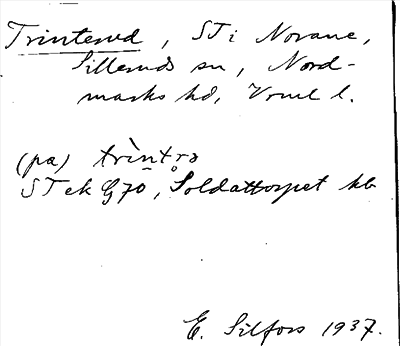 Trinterud, ST i Norane,
Sillerud sn, Nord-
marks hd, Vrml l.
(pa) trìntrə
ST ek G70, Soldattorpet hb
E. Silfors 1937.